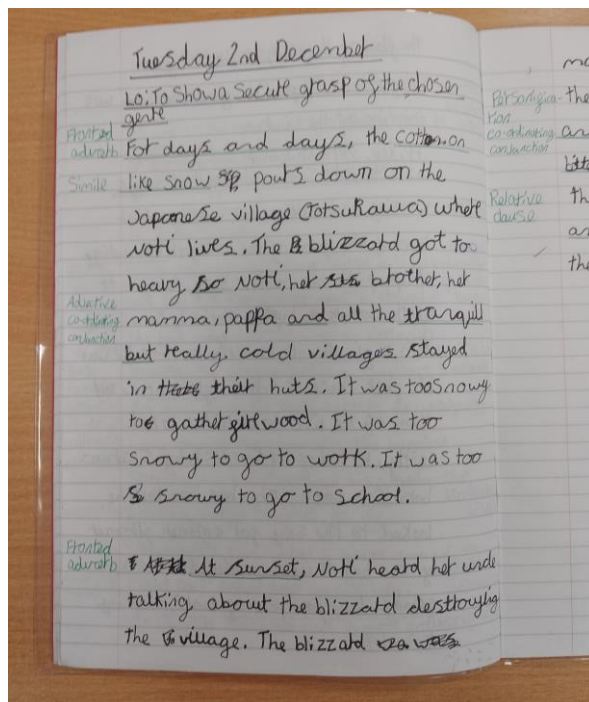 Tuesday 2nd December
Lo: To Show a Secure grasp of the chosen
genre
Fronted
adverb
For days and days, the cotton on
Simile
like snow pours down on the
Japanese village (Totsukawa) where
Nori lives. The blizzard got to
heavy so Nori, her brother, her
Adjective
co-ordinating
conjunction
mamma, pappa and all the tranquill
but really cold villages stayed
in their huts. It was too snowy
to gather firewood. It was too
snowy to go to work. It was too
snowy to go to school.
Fronted
adverb
At sunset, Nori heard her uncle
talking about the blizzard destroying
the village. The blizzard
mo
Personifica-
tion
co-ordinating
conjunction
the
an
Relative
clause
th
an
the